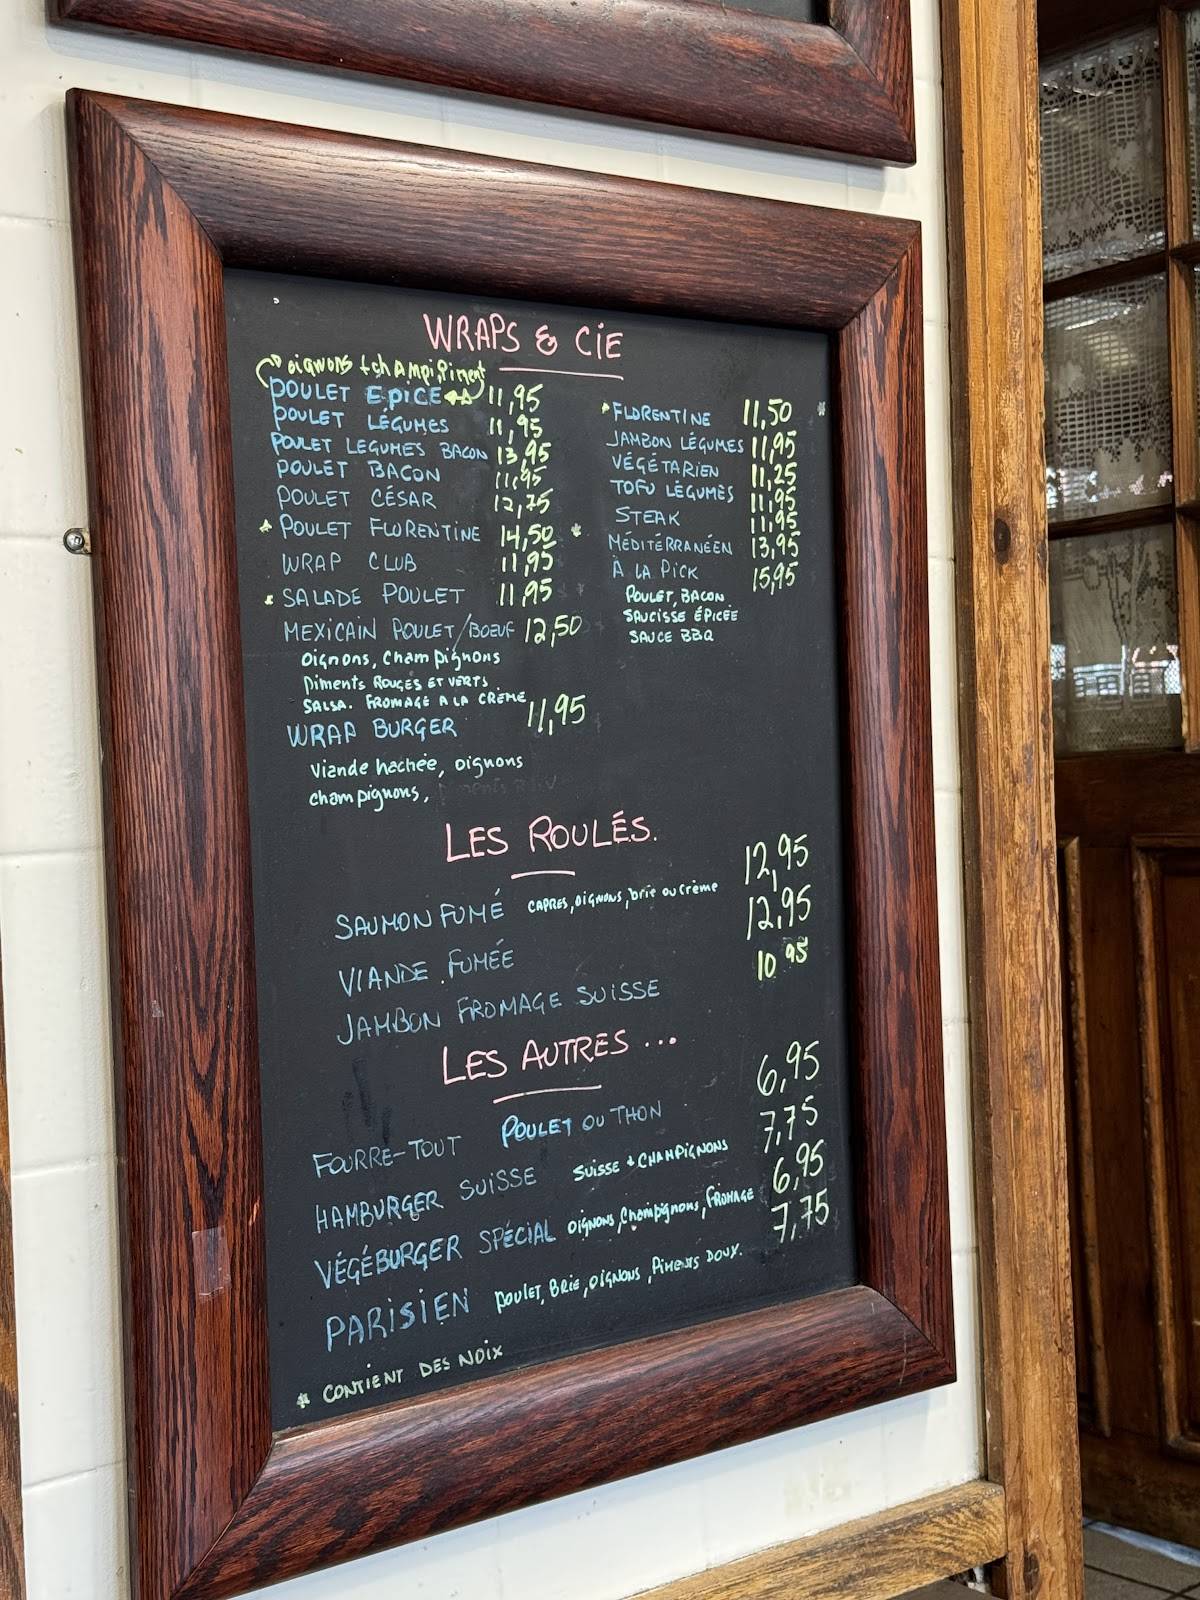 WRAPS & CIE
oignons + champi, Piment
POULET EPICE 11,95
POULET LÉGUMES 11,95
POULET LEGUMES BACON 13,95
POULET BACON 11,95
POULET CÉSAR 12,75
* POULET FLORENTINE 14,50 *
WRAP CLUB 11,95
* SALADE POULET 11,95
MEXICAIN POULET/BOEUF 12,50
oignons, champignons
Piments ROUGES ET VERTS
SALSA. FROMAGE A LA CRÈME
WRAP BURGER 11,95
Viande hachée, oignons
champignons,
* FLORENTINE 11,50 *
JAMBON LÉGUMES 11,95
VÉGÉTARIEN 11,25
TOFU LÉGUMES 11,95
STEAK 11,95
MÉDITERRANÉEN 13,95
À LA PICK 15,95
POULET, BACON
SAUCISSE ÉPICÉE
SAUCE BBQ
LES ROULÉS.
SAUMON FUMÉ CAPRES, OIGNONS, brie ou crème 12,95
VIANDE FUMÉE 12,95
JAMBON FROMAGE SUISSE 10 95
LES AUTRES ...
FOURRE-TOUT POULET OU THON 6,95
HAMBURGER SUISSE SUISSE + CHAMPIGNONS 7,75
VÉGÉBURGER SPÉCIAL oignons, champignons, FROMAGE 6,95
PARISIEN POULET, BRIE, OIGNONS, PIMENTS DOUX. 7,75
* CONTIENT DES NOIX